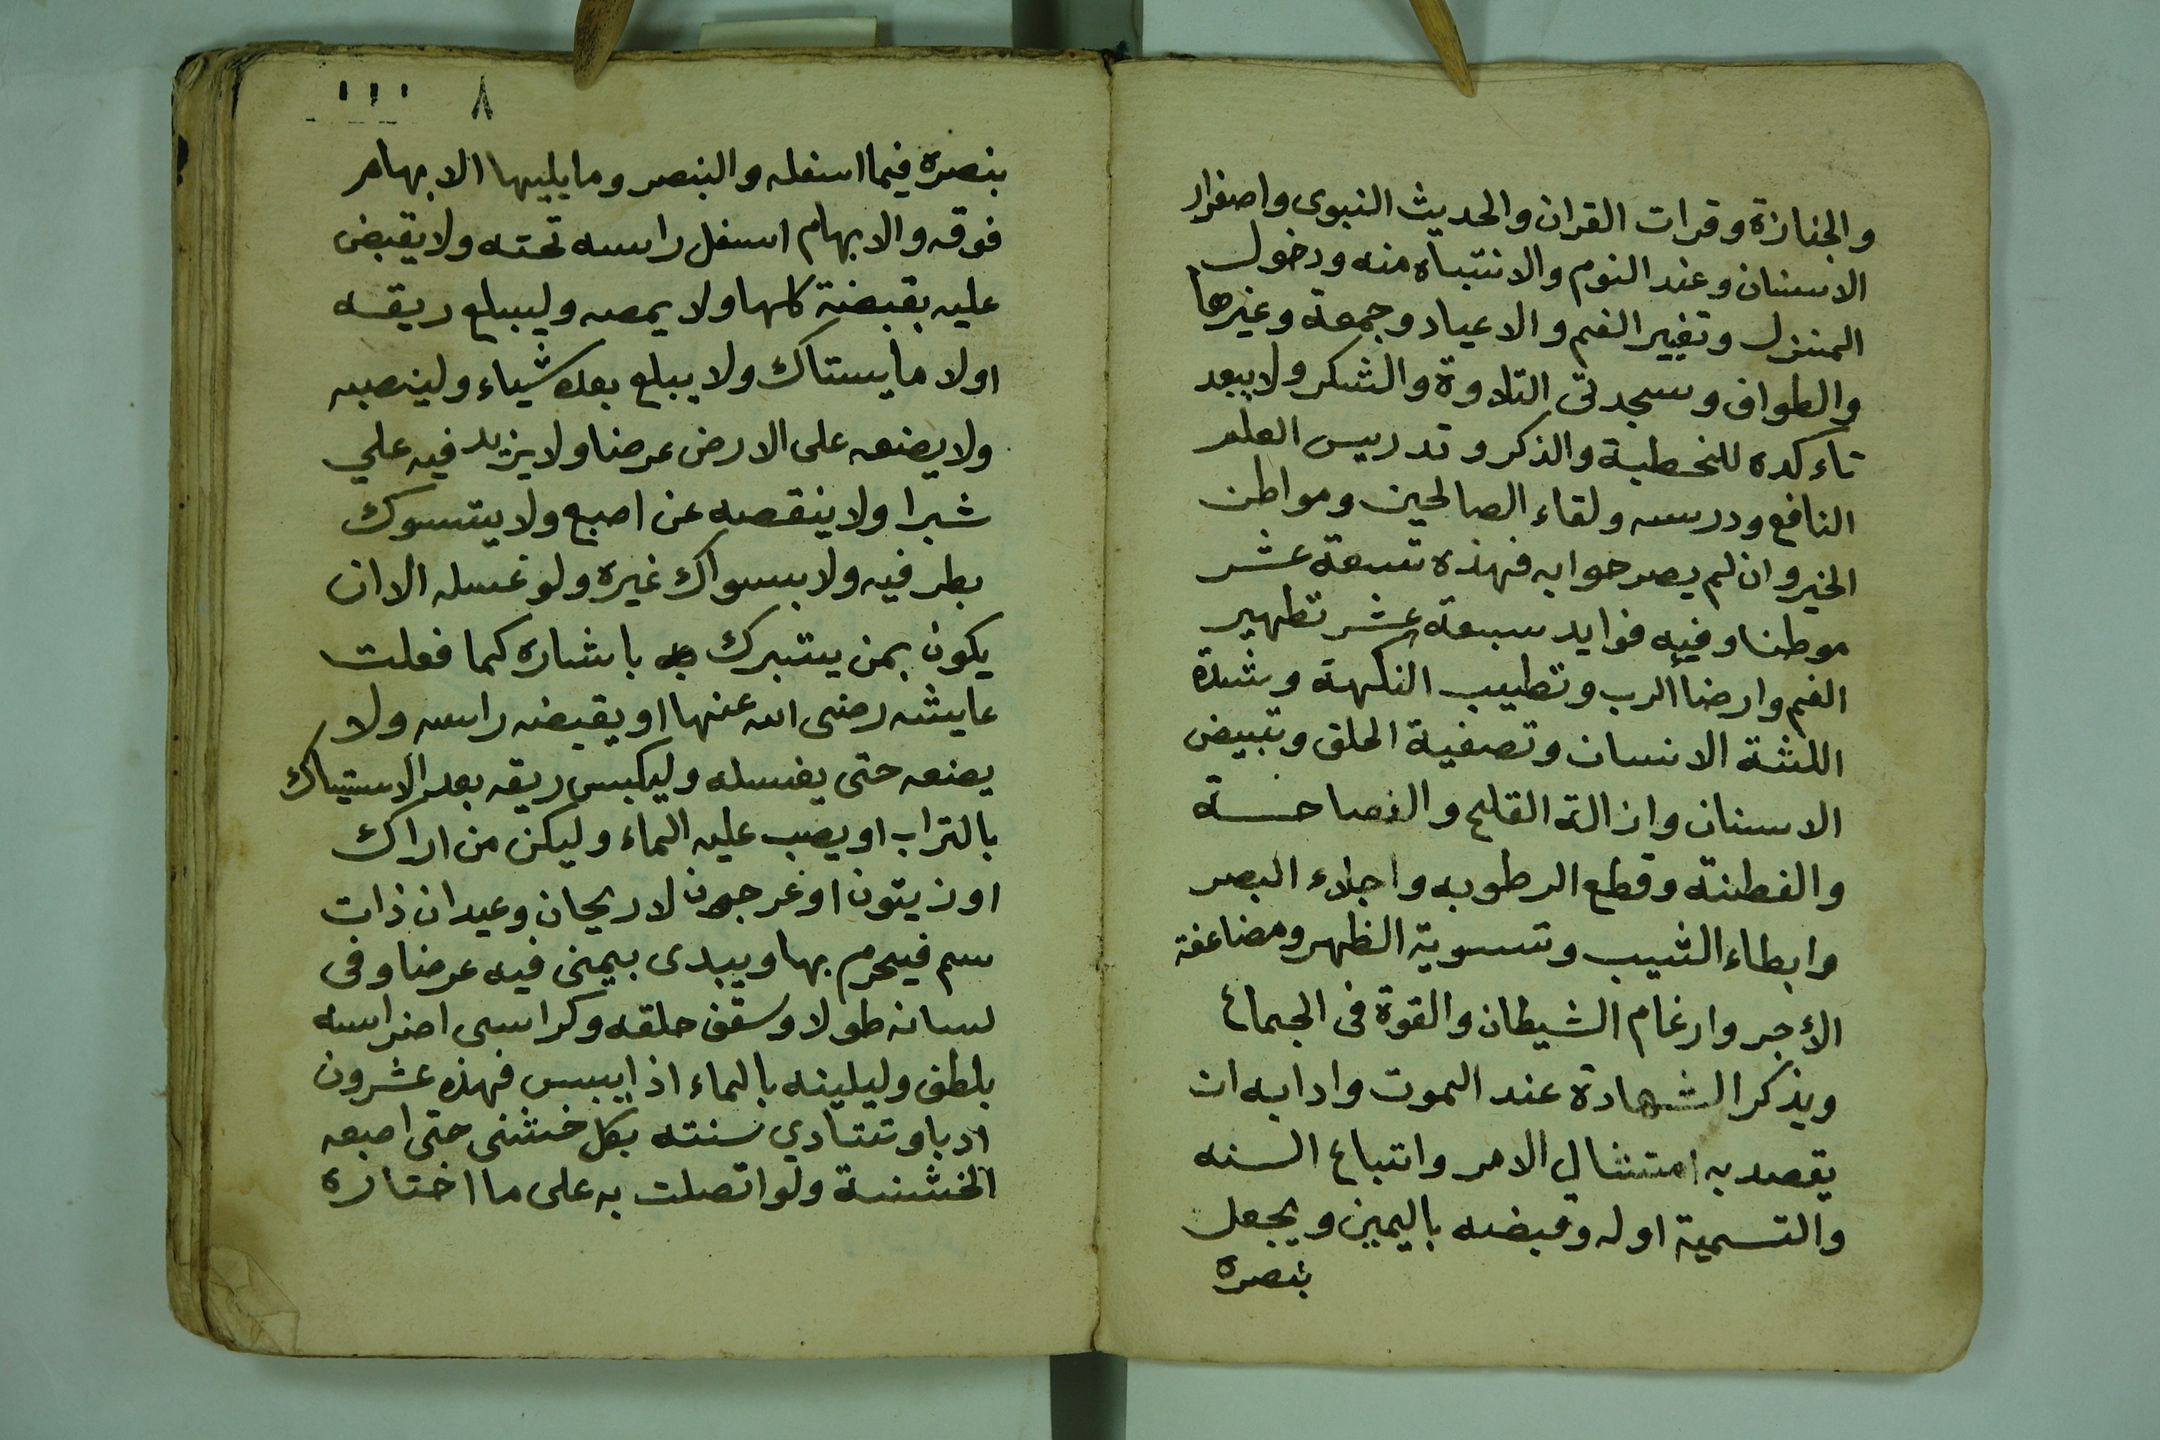 والجنازة وقرات القران والحديث النبوى واصفرار
الاسنان وعند النوم والانتباه منه ودخول
المنزل وتغيير الفم والاعياد وجمعة وغيرها
والطواف وسجدتى التلاوة والشكر ولا يبعد
تاءكده للخطبة والذكر و تدريس العلم
النافع ودرسه ولقاء الصالحين ومواطن
الخير وان لم يصرحوا به فهذه تسعة عشر
موطنا وفيه فوايد سبعة عشر تطهير
الفم وارضا الرب وتطييب النكهة وشدة
اللثة الانسان وتصفية الحلق وتبييض
الاسنان وازالة القلح والفصاحة
والفطنة وقطع الرطوبه واجلاء البصر
وابطاء الشيب وتسوية الظهر ومضاعفة
الأجر وارغام الشيطان والقوة فى الجماع
ويذكر الشهادة عند الموت وادابه ان
يقصد به امتثال الامر واتباع السنه
والتسمية اوله وقبضه باليمين ويجعل
بنصره
٨
بنصره فيما اسفله والبنصر وما يليها الابهام
فوقه والابهام اسفل راسه تحته ولا يقبض
عليه بقبضة كلها ولا يمصه وليبلع ريقه
اولا ما يستاك ولا يبلع بعده شياء ولينصبه
ولا يضعه على الارض عرضا ولا يزيد فيه علي
شبرا ولا ينقصه عن اصبع ولا يتسوك
بطرفيه ولا بسواك غيره ولو غسله الا ان
يكون بمن يتبرك به باشاره كما فعلت
عايشه رضى الله عنها او يقبضه راسه ولا
يضعه حتى يغسله وليكبس ريقه بعد الاستياك
بالتراب او يصب عليه الماء وليكن من اراك
او زيتون او عرجون لا ريحان وعيدان ذات
سم فيحرم بها ويبدى بيمنى فيه عرضا وفى
لسانه طولا وسقف حلقه وكراسى اضراسه
بلطف وليلينه بالماء اذا يبس فهذه عشرون
ادبا وتتادي سنته بكل خشنى حتى اصبعه
الخشنة ولو اتصلت به على ما اختاره